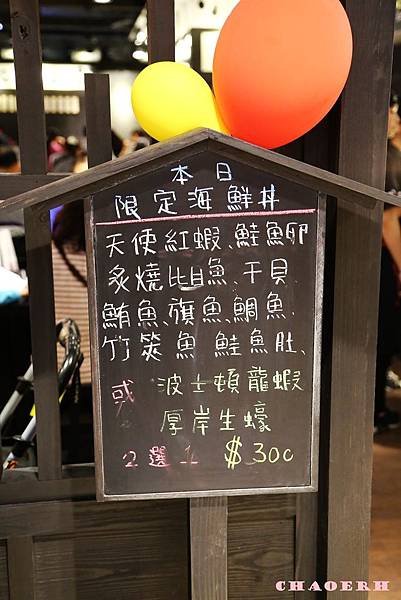 本日
限定海鮮丼
天使紅蝦、鮭魚卵
炙燒比目魚、干貝
鮪魚、旗魚、鯛魚、
竹筴魚 鮭魚肚、
或 波士頓龍蝦
厚岸生蠔
2選1 $300
CHAOERH